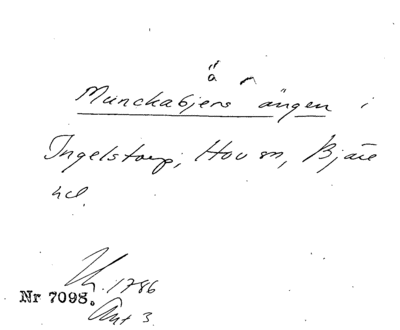 Munckabjers ängen i
Ingelstorp, Hov sn, Bjäre
hd.
Lh. 1786
Nr 7098.
Akt 3